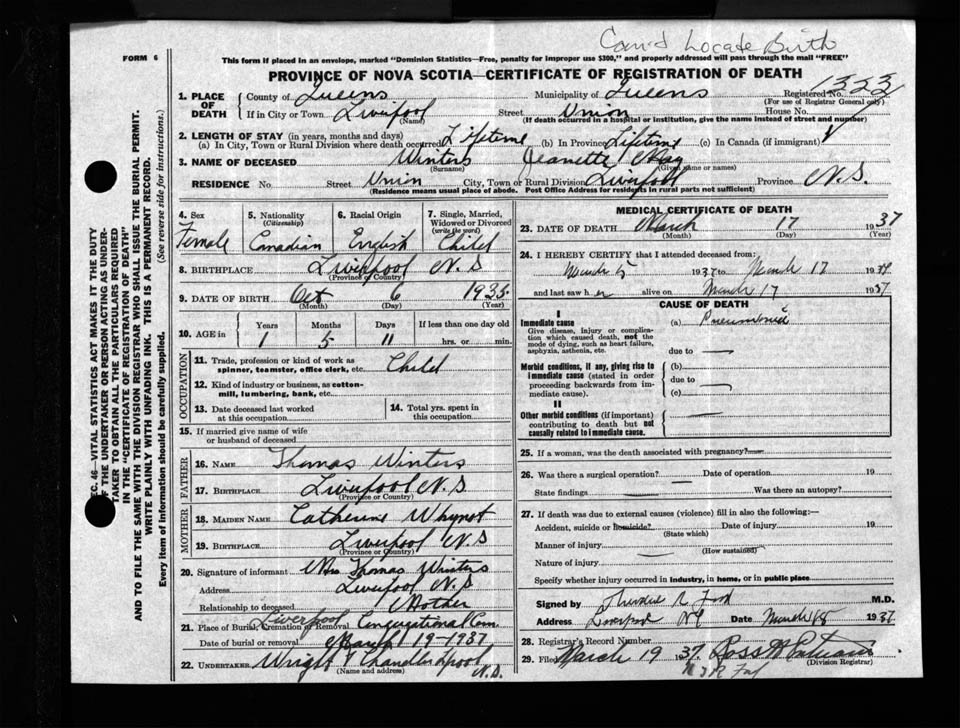 Can't Locate Birth
FORM 6
This form if placed in an envelope, marked "Dominion Statistics—Free, penalty for improper use $300," and properly addressed will pass through the mail "FREE"
PROVINCE OF NOVA SCOTIA—CERTIFICATE OF REGISTRATION OF DEATH
1. PLACE OF DEATH County of Queens Municipality of Queens Registered No. 1323
(For use of Registrar General only)
If in City or Town Liverpool Street Union House No.
(Name) (If death occurred in a hospital or institution, give the name instead of street and number)
2. LENGTH OF STAY (in years, months and days)
(a) In City, Town or Rural Division where death occurred Lifetime (b) In Province Lifetime (c) In Canada (if immigrant)
3. NAME OF DECEASED Winters Jeanette May
(Surname) (Given name or names)
RESIDENCE No Street Union City, Town or Rural Division Liverpool Province N.S.
(Residence means usual place of abode. Post Office Address for residents in rural parts not sufficient)
4. Sex 5. Nationality (Citizenship) 6. Racial Origin 7. Single, Married, Widowed or Divorced (write the word)
Female Canadian English Child
8. BIRTHPLACE Liverpool N.S
(Province or Country)
9. DATE OF BIRTH Oct 6 1935
(Month) (Day) (Year)
10. AGE in Years Months Days If less than one day old
1 5 11 hrs. or min.
OCCUPATION
11. Trade, profession or kind of work as spinner, teamster, office clerk, etc. Child
12. Kind of industry or business, as cotton-mill, lumbering, bank, etc.
13. Date deceased last worked at this occupation 14. Total yrs. spent in this occupation
15. If married give name of wife or husband of deceased
FATHER
16. NAME Thomas Winters
17. BIRTHPLACE Liverpool N.S
(Province or Country)
MOTHER
18. MAIDEN NAME Catherine Whynot
19. BIRTHPLACE Liverpool N.S
(Province or Country)
20. Signature of informant Mrs Thomas Winters
Address Liverpool N.S
Relationship to deceased Mother
21. Place of Burial, Cremation or Removal Liverpool Congregational Cem
Date of burial or removal March 19-1937
22. UNDERTAKER Wright Chandler Lpool N.S.
(Name and address)
MEDICAL CERTIFICATE OF DEATH
23. DATE OF DEATH March 17 1937
(Month) (Day) (Year)
24. I HEREBY CERTIFY that I attended deceased from:
March 5 1937 to March 17 1937
and last saw her alive on March 17 1937
CAUSE OF DEATH
I
Immediate cause (a) Pneumonia
Give disease, injury or complication which caused death, not the mode of dying, such as heart failure, asphyxia, asthenia, etc.
due to
Morbid conditions, if any, giving rise to immediate cause (stated in order proceeding backwards from immediate cause).
(b)
due to
(c)
II
Other morbid conditions (if important) contributing to death but not causally related to immediate cause.
25. If a woman, was the death associated with pregnancy?
26. Was there a surgical operation? Date of operation 19
State findings Was there an autopsy?
27. If death was due to external causes (violence) fill in also the following:—
Accident, suicide or homicide? Date of injury 19
(State which)
Manner of injury
(How sustained)
Nature of injury
Specify whether injury occurred in industry, in home, or in public place
Signed by Theodore R Ford M.D.
Address Liverpool NS Date March 18 1937
28. Registrar's Record Number
29. Filed March 19 1937.
(Division Registrar)
SEC. 46—VITAL STATISTICS ACT MAKES IT THE DUTY
OF THE UNDERTAKER OR PERSON ACTING AS UNDER-
TAKER TO OBTAIN ALL THE PARTICULARS REQUIRED
IN THE "CERTIFICATE OF REGISTRATION OF DEATH"
AND TO FILE THE SAME WITH THE DIVISION REGISTRAR WHO SHALL ISSUE THE BURIAL PERMIT.
WRITE PLAINLY WITH UNFADING INK. THIS IS A PERMANENT RECORD.
Every item of information should be carefully supplied. (See reverse side for instructions.)